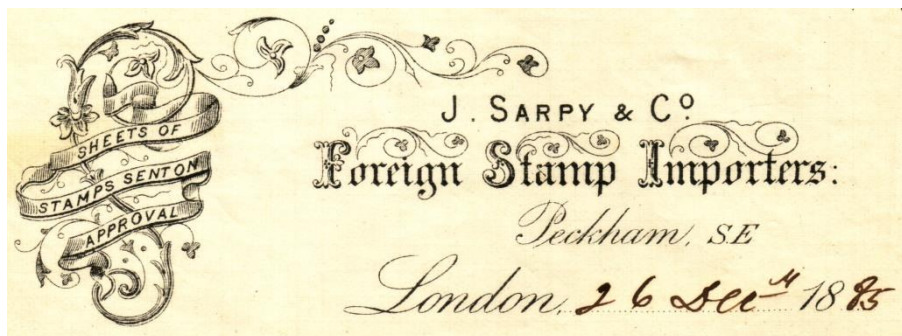 SHEETS OF
STAMPS SENT ON
APPROVAL
J. SARPY & Cº
Foreign Stamp Importers:
Peckham, S.E
London, 26 Decᵣ 1885